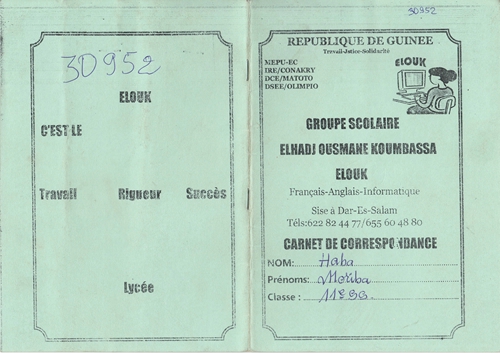 30952
ELOUK
C'EST LE
Travail Rigueur Succès
Lycée
30952
REPUBLIQUE DE GUINEE
Travail-Jstice-Solidarité
MEPU-EC
IRE/CONAKRY
DCE/MATOTO
DSEE/OLIMPIO
ELOUK
GROUPE SCOLAIRE
ELHADJ OUSMANE KOUMBASSA
ELOUK
Français-Anglais-Informatique
Sise à Dar-Es-Salam
Téls:622 82 44 77/655 60 48 80
CARNET DE CORRESPONDANCE
NOM: Haba
Prénoms: Moriba
Classe :